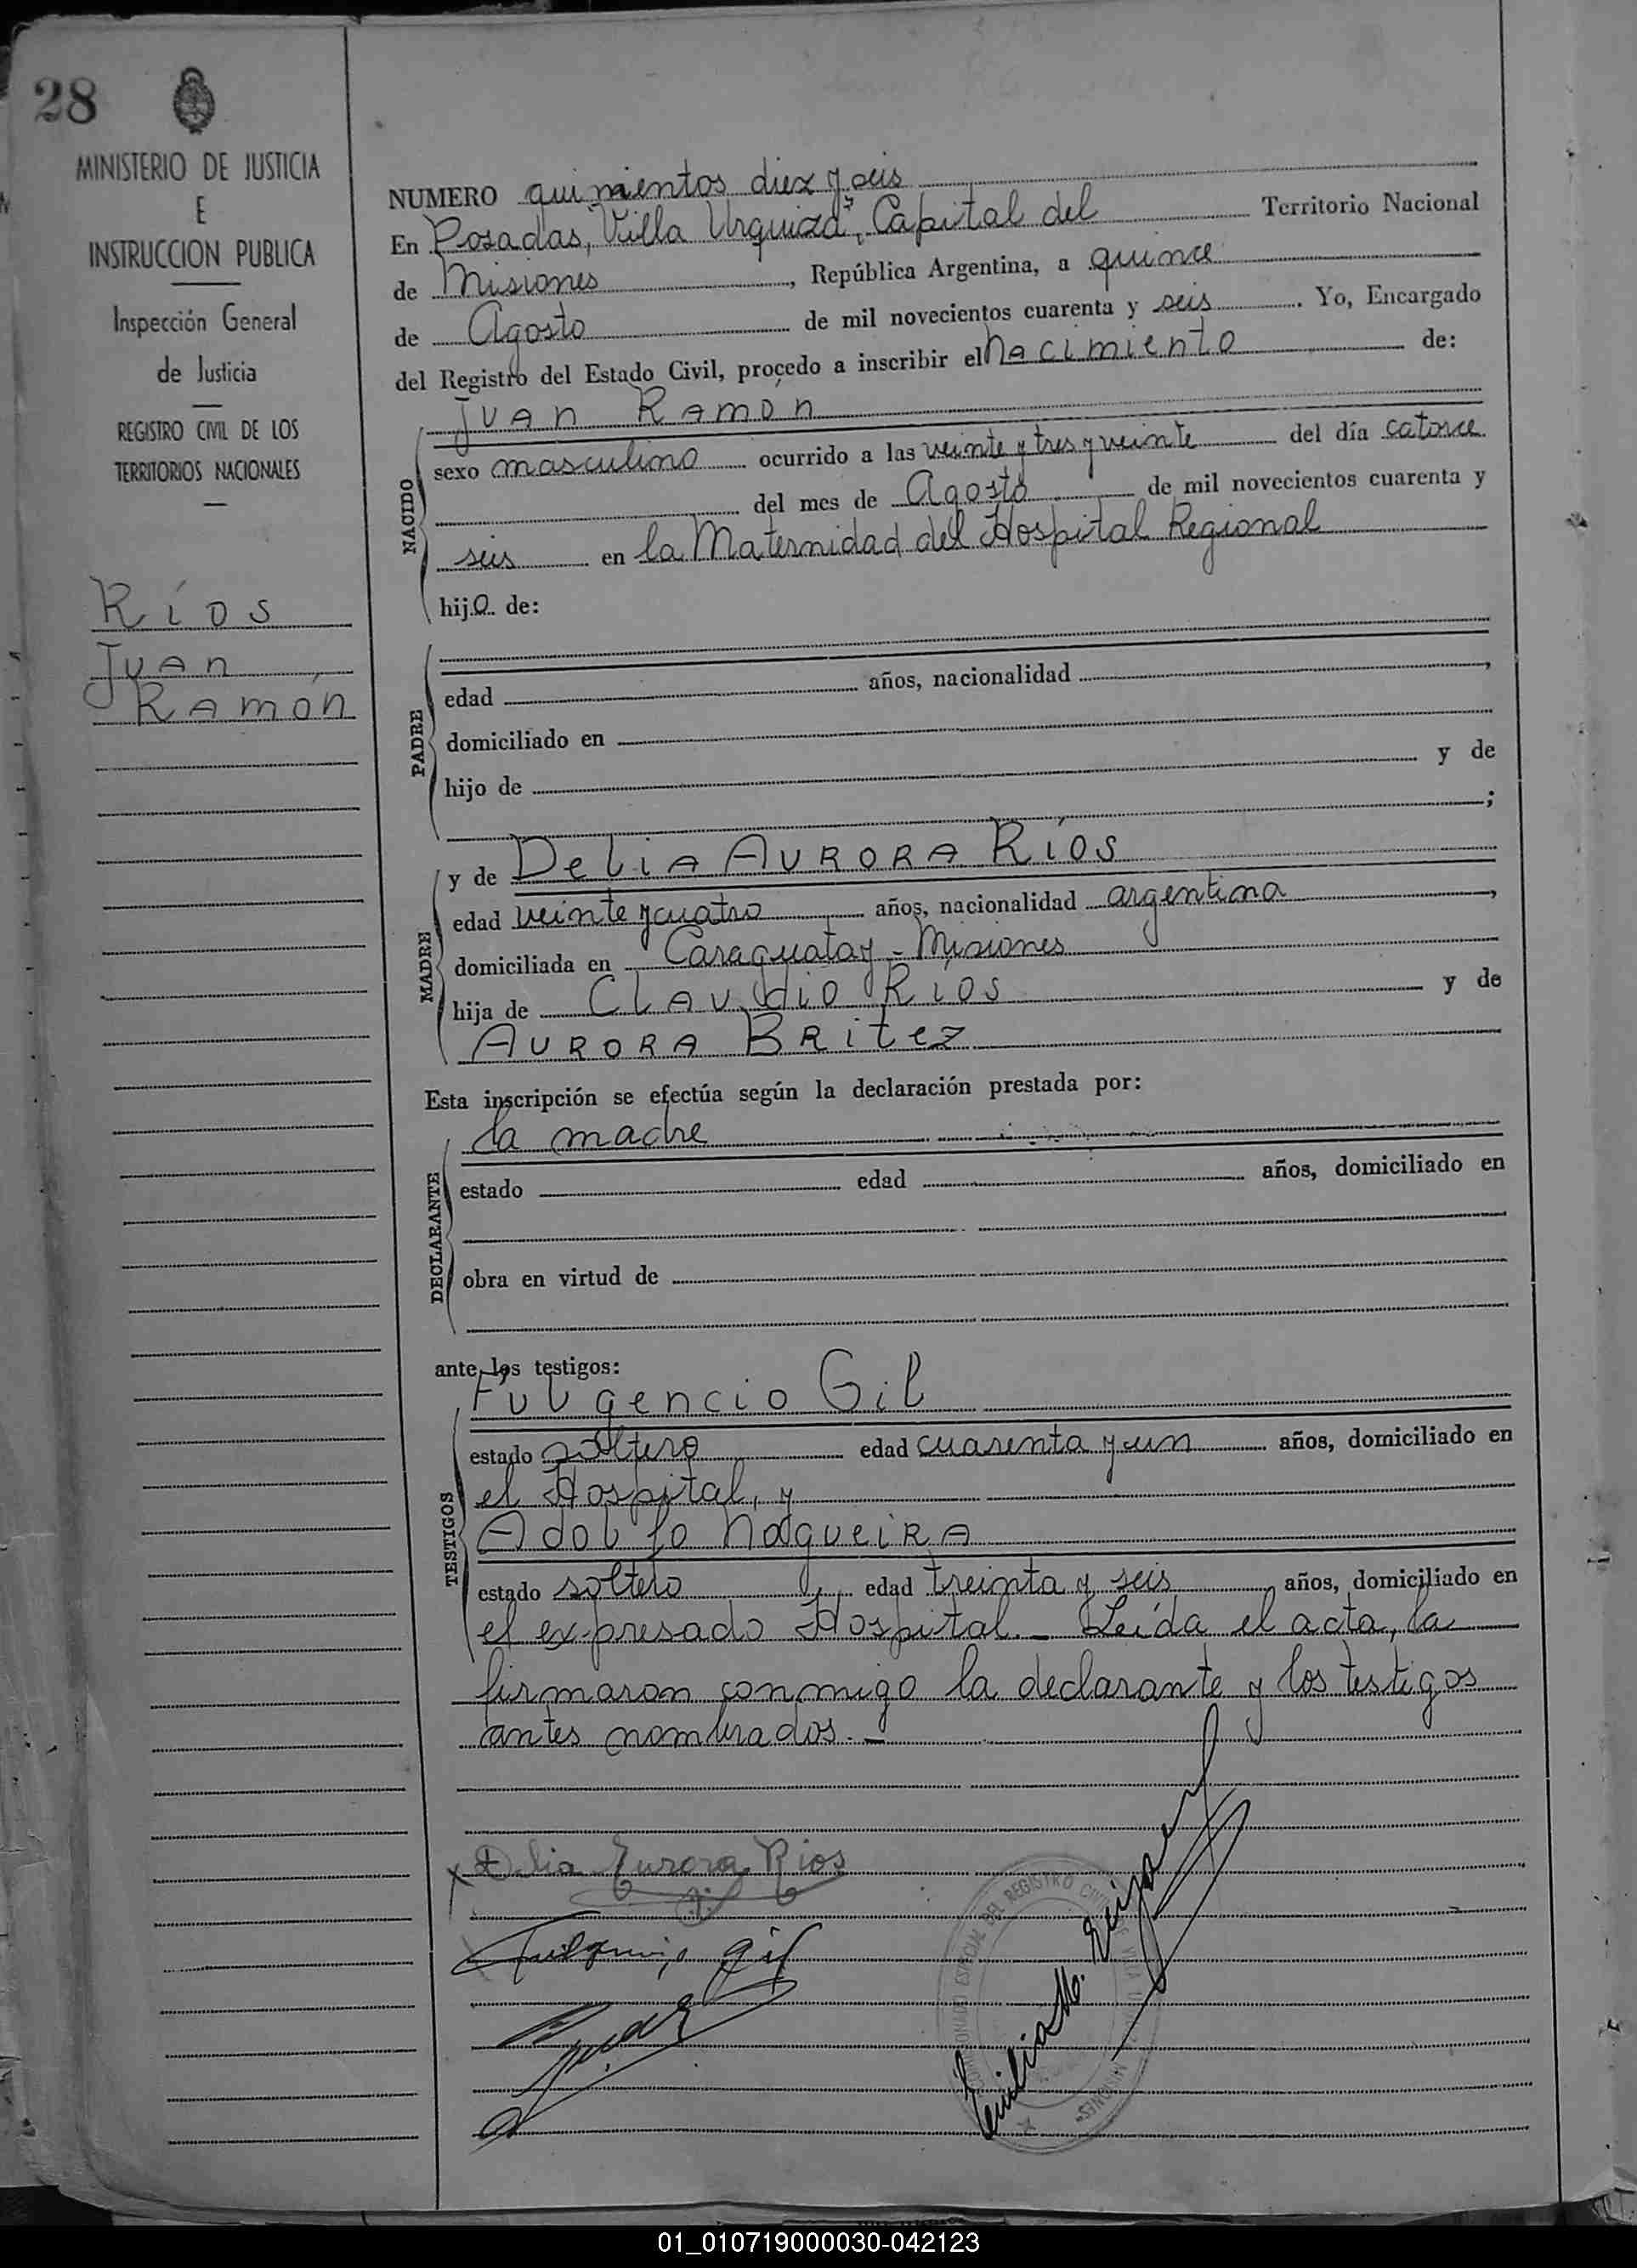 28
MINISTERIO DE JUSTICIA
E
INSTRUCCION PUBLICA
Inspección General
de Justicia
REGISTRO CIVIL DE LOS
TERRITORIOS NACIONALES
Ríos
Juan
Ramón
NUMERO quinientos diez y seis
En Posadas, "Villa Urquiza", Capital del Territorio Nacional
de Misiones, República Argentina, a quince
de Agosto de mil novecientos cuarenta y seis. Yo, Encargado
del Registro del Estado Civil, procedo a inscribir el nacimiento de:
Juan Ramón
NACIDO
sexo masculino ocurrido a las veinte y tres y veinte del día catorce
del mes de Agosto de mil novecientos cuarenta y
seis en la Maternidad del Hospital Regional
hijo de:
PADRE
edad años, nacionalidad ,
domiciliado en
hijo de y de
;
MADRE
y de Delia Aurora Ríos
edad veinte y cuatro años, nacionalidad argentina,
domiciliada en Caraguatay - Misiones
hija de Claudio Ríos y de
Aurora Britez
Esta inscripción se efectúa según la declaración prestada por:
la madre
DECLARANTE
estado edad años, domiciliado en
obra en virtud de
ante los testigos:
Fulgencio Gil
TESTIGOS
estado soltero edad cuarenta y un años, domiciliado en
el Hospital, y
Adolfo Nogueira
estado soltero, edad treinta y seis años, domiciliado en
el expresado Hospital. - Leída el acta, la
firmaron conmigo la declarante y los testigos
antes nombrados. -
x Delia Aurora Rios
Fulgencio Gil
DEL REGISTRO CIVIL
MISIONES
01_010719000030-042123